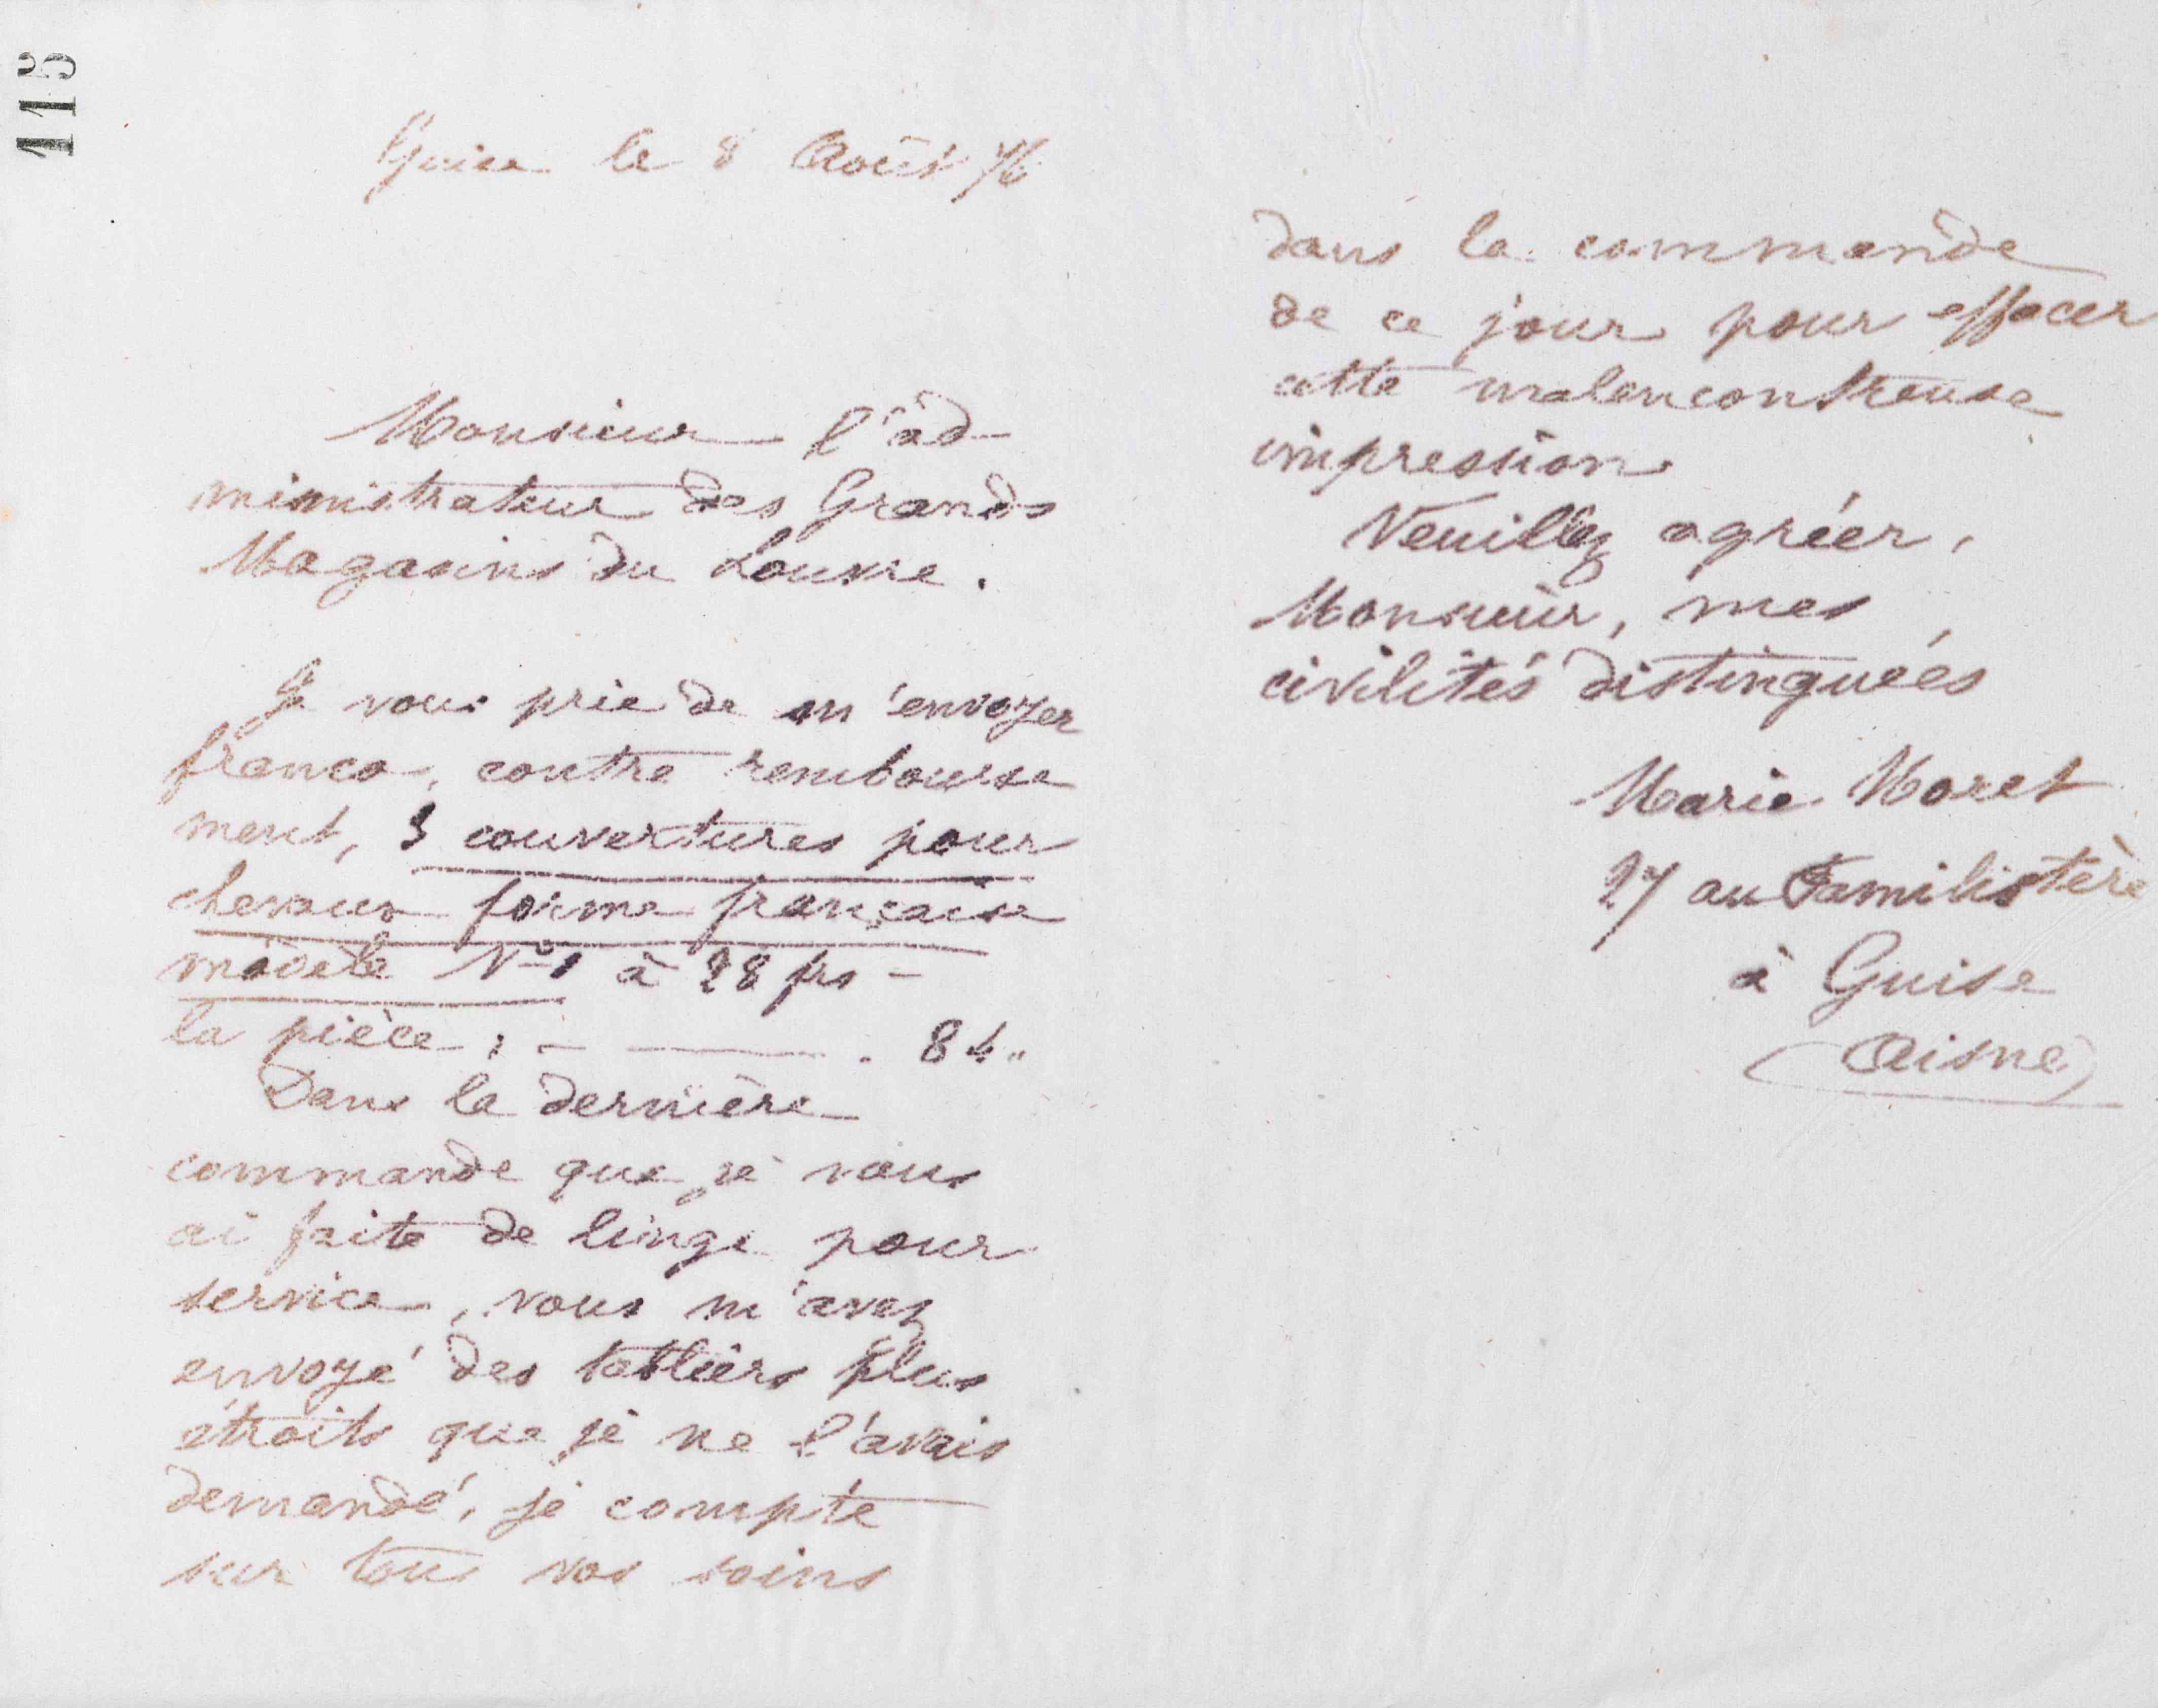 115
Guise le 8 Août 76
Monsieur l'ad-
ministrateur des Grands
Magasins du Louvre.
Je vous prie de m'envoyer
franco, contre rembourse
ment, 3 couvertures pour
chevaux forme française
modèle N° 1 à 28 frs -
la pièce : - ——— . 84 "
Dans la dernière
commande que je vous
ai faite de linge pour
service, vous m'avez
envoyé des tabliers plus
étroits que je ne l'avais
demandé, je compte
sur tous vos soins
dans la commande
de ce jour pour effacer
cette malencontreuse
impression
Veuillez agréer,
Monsieur, mes
civilités distinguées
Marie Moret
27 au Familistère
à Guise
(Aisne)